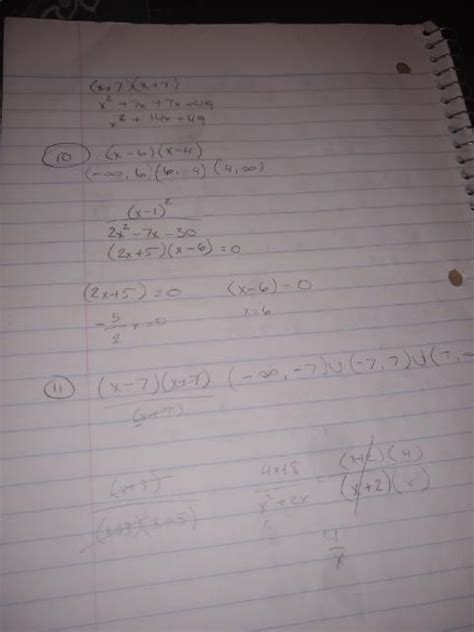 (x+7)(x+7)
x² + 7x + 7x + 49
x² + 14x + 49
10) (x-6)(x-4)
(-∞, 6)(6, 4)(4, ∞)
(x-1)²
2x² - 7x - 30
(2x+5)(x-6) = 0
(2x+5) = 0 (x-6) = 0
-5/2 x = 0 x = 6
11) (x-7)(x+7) (-∞, -7) ∪ (-7, 7) ∪ (7,
(x+7)
4x+8 = (x+2)(4)
x² + 2x (x+2)(x)
4
x